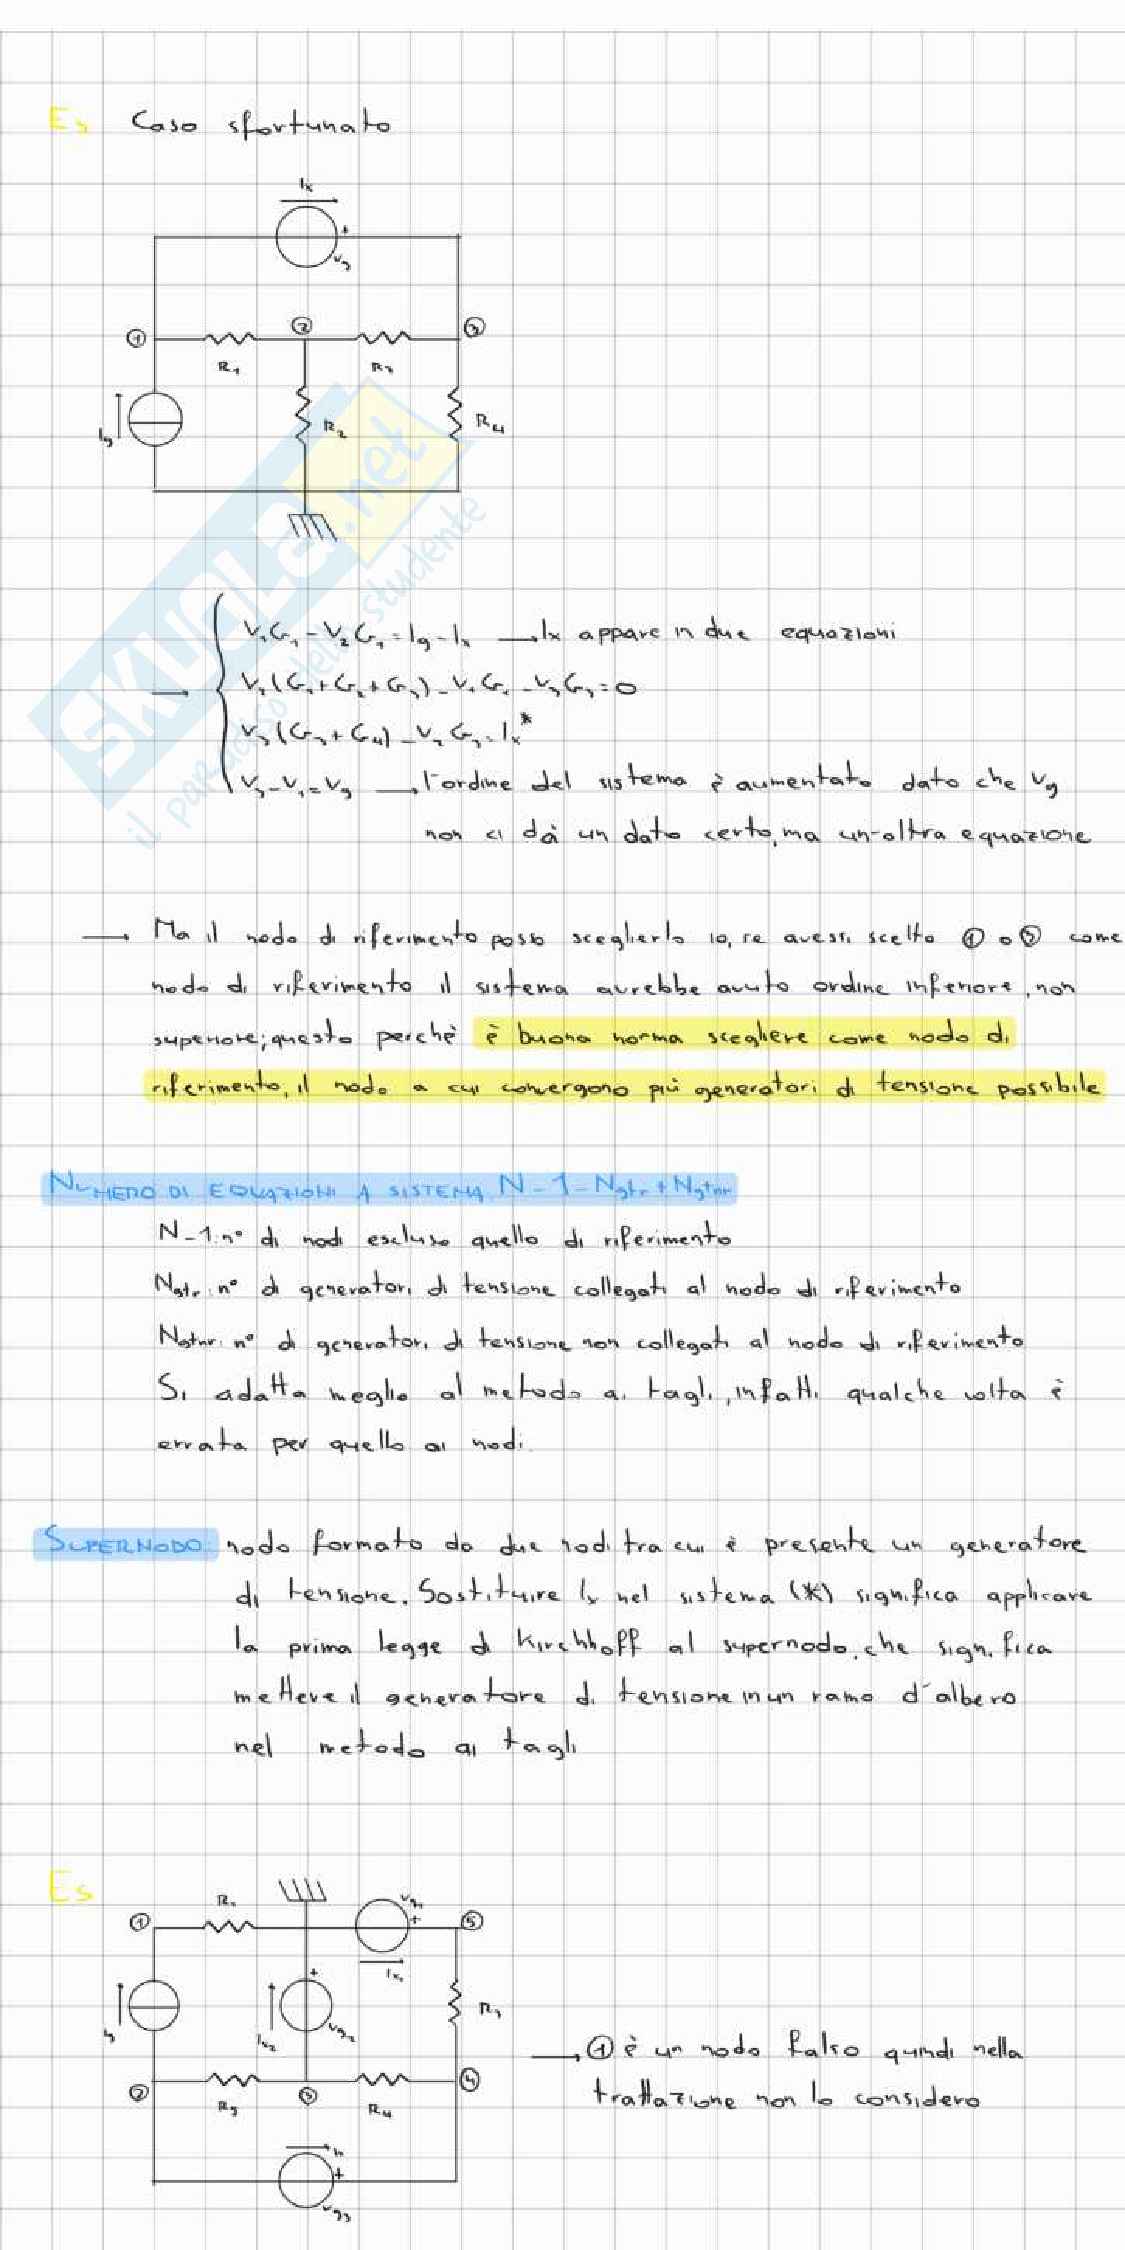 Es Caso sfortunato
Ix
+
Vg
1 2 3
R1 R3
Ig R2 R4
SKUOLA.net
il paradiso dello studente
V1G1 - V2G1 = Ig - Ix → Ix appare in due equazioni
→ V2(G1+G2+G3) - V1G1 - V3G3 = 0
V3(G3+G4) - V2G3 = Ix*
V3 - V1 = Vg → l'ordine del sistema è aumentato dato che Vg
non ci dà un dato certo, ma un'altra equazione
→ Ma il nodo di riferimento posso sceglierlo io, se avessi scelto 1 o 3 come
nodo di riferimento il sistema avrebbe avuto ordine inferiore, non
superiore; questo perchè è buona norma scegliere come nodo di
riferimento, il nodo a cui convergono più generatori di tensione possibile
NUMERO DI EQUAZIONI A SISTEMA: N-1-Ngtr+Ngtnr
N-1: n° di nodi escluso quello di riferimento
Ngtr: n° di generatori di tensione collegati al nodo di riferimento
Ngtnr: n° di generatori di tensione non collegati al nodo di riferimento
Si adatta meglio al metodo ai tagli, infatti qualche volta è
errata per quello ai nodi.
SUPERNODO: nodo formato da due nodi tra cui è presente un generatore
di tensione. Sostituire Ix nel sistema (*) significa applicare
la prima legge di Kirchhoff al supernodo, che significa
mettere il generatore di tensione in un ramo d'albero
nel metodo ai tagli
Es
R1 Vg1
1 + 5
Ix1
+
Ig Ix2 Vg2 R3
→ 1 è un nodo falso quindi nella
2 3 4
trattazione non lo considero
R5 R4
+
Vg3